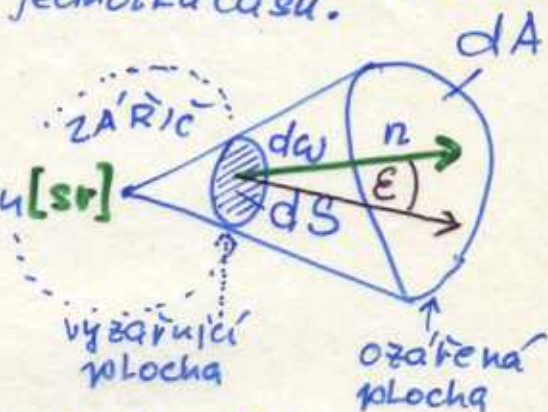 jednotku času.
dA
ZÁŘIČ
dω n
u [sr] ε
dS
vyzařující
plocha
ozářená
plocha